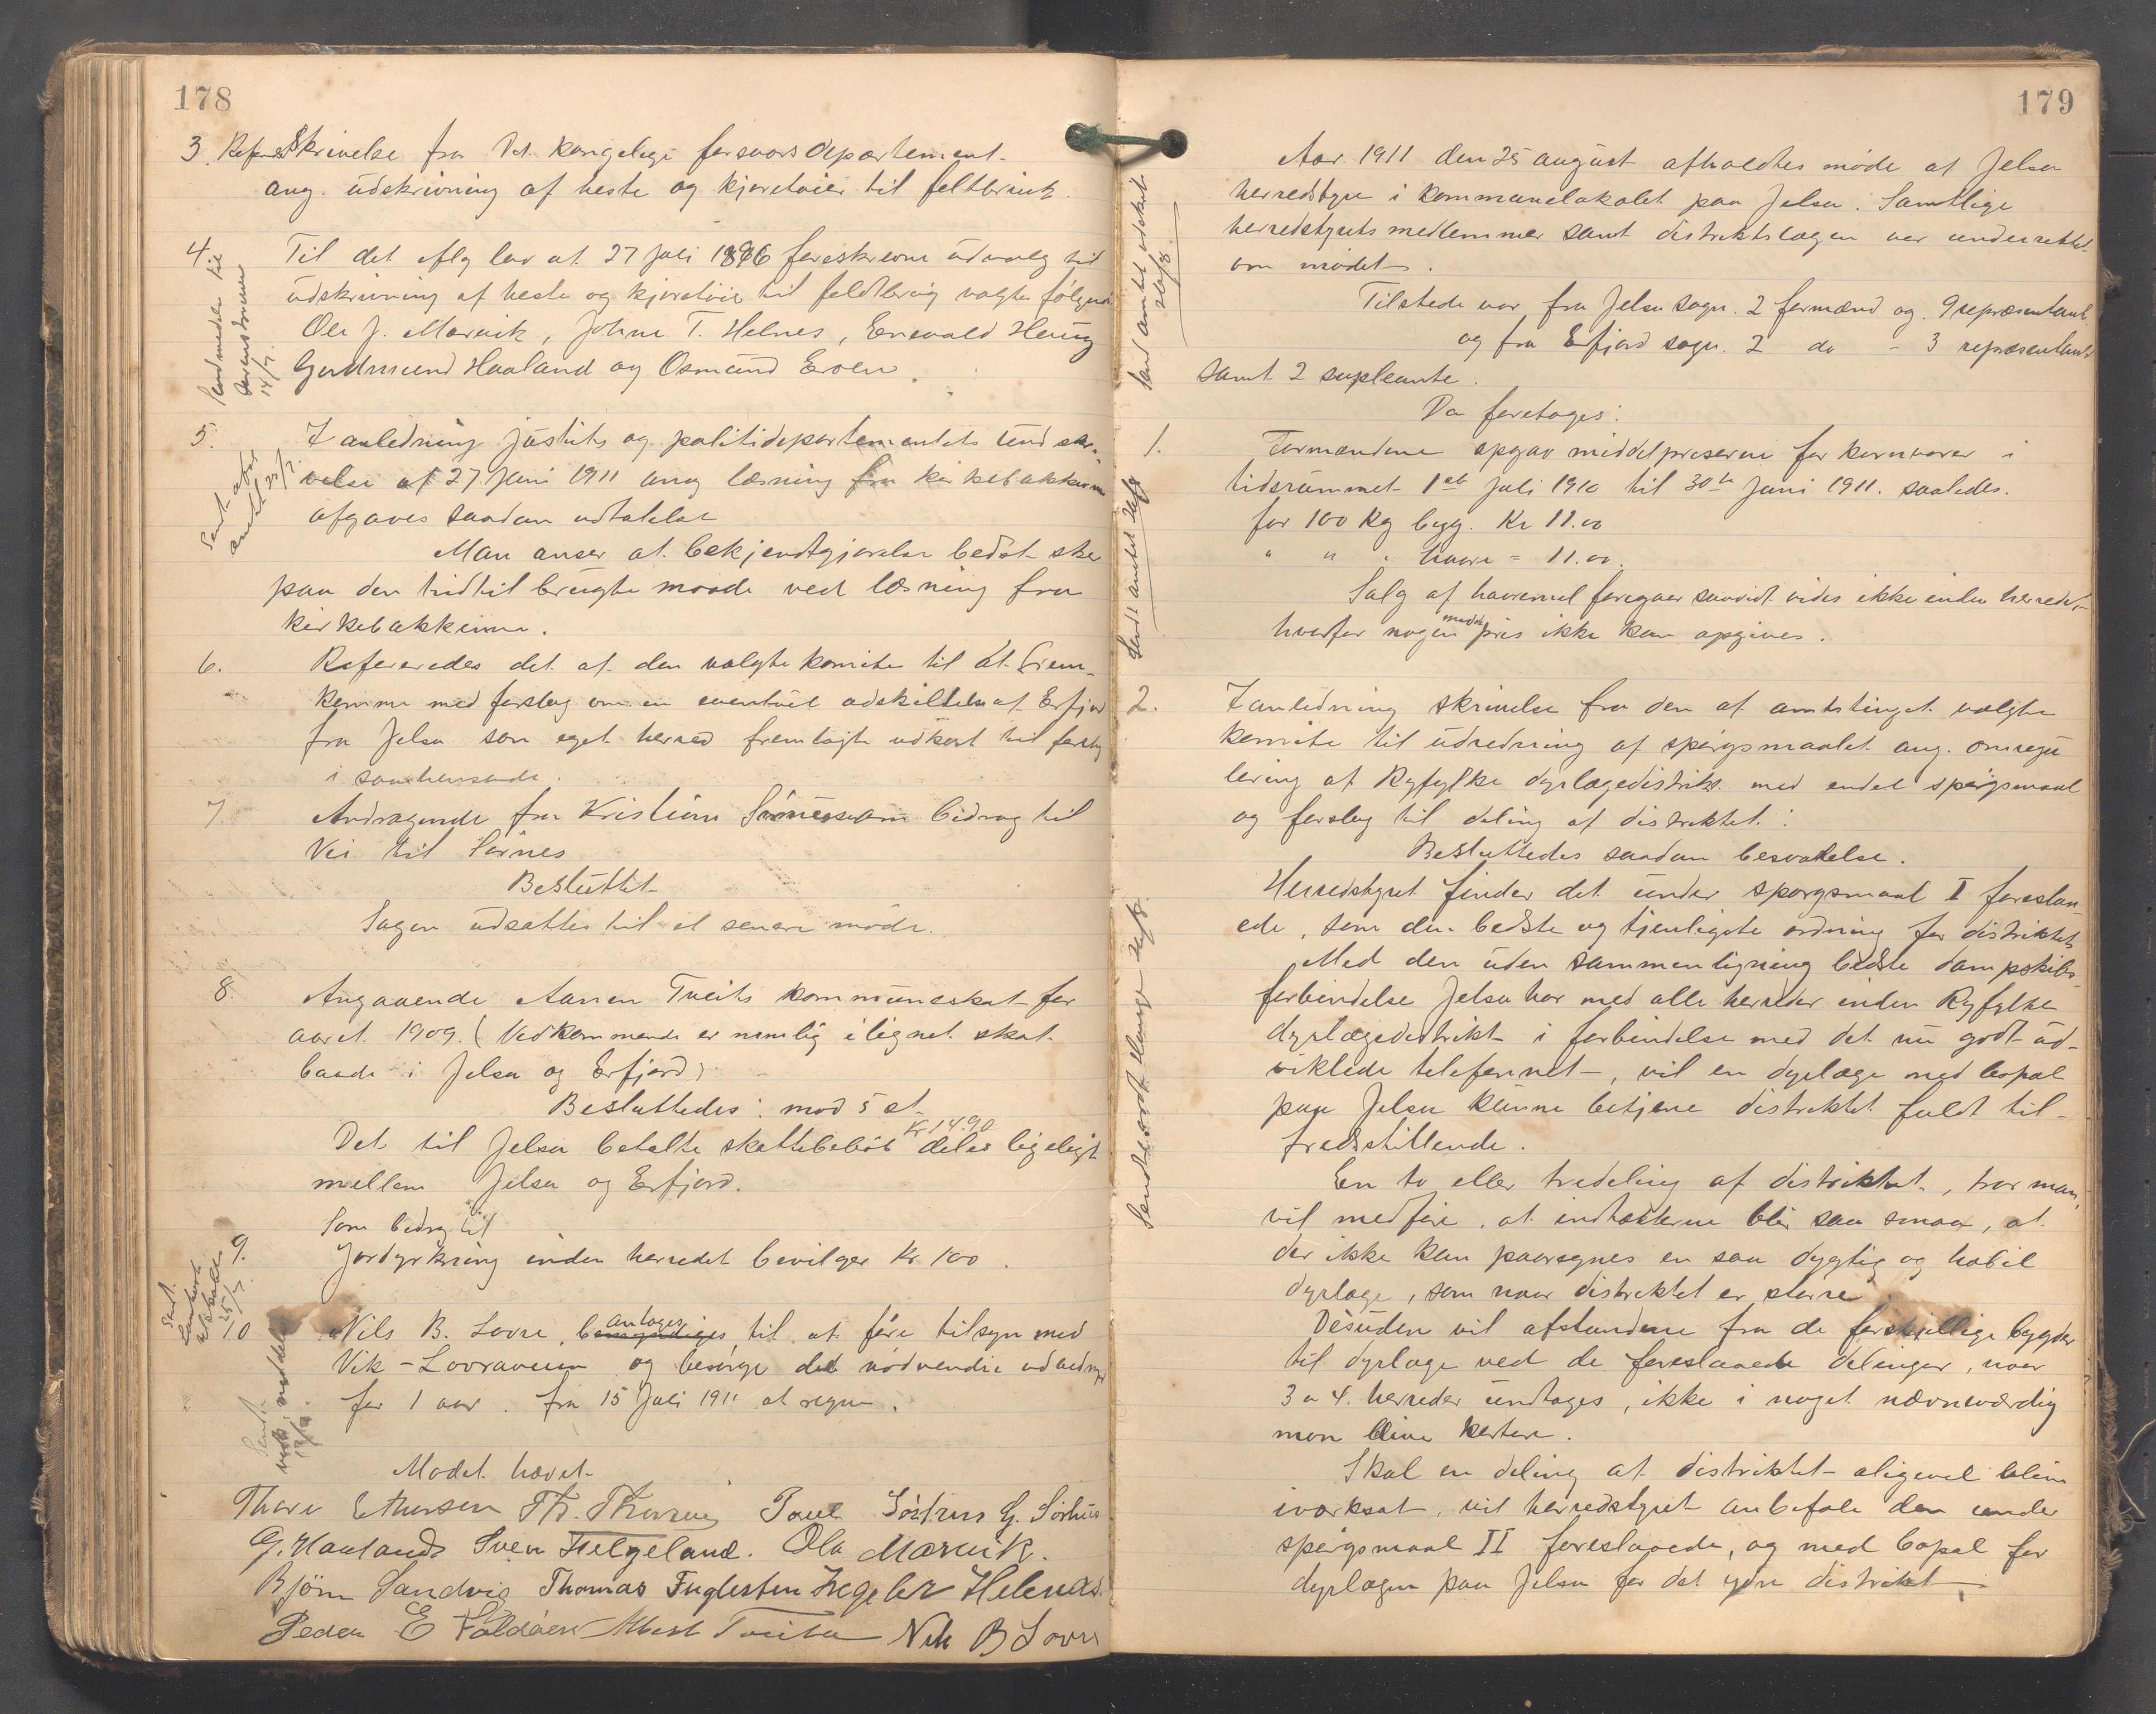 178
3. Refer. Skrivelse fra Det kongelige forsvarsdepartement
ang. udskrivning af heste og kjøretøier til feltbruk.
4. Til det iflg lov af 27 juli 1896 foreskrevne udvalg til
udskrivning af heste og kjøretøier til feldbrug valgte følgende
Ole J. Marvik, Johne T. Helnes, Enevald Haug
Gudmund Haaland og Osmund Eroen.
Sent meddelelse til
14/7.
5. I anledning justits og politidepartementets rundskri-
velse af 27 Juni 1911 ang læsning fra kirkebakken
afgaves saadan udtalelse
Man anser at bekjendtgjørelse bedst sker
paa den hidtil brugte maade ved læsning fra
kirkebakkerne.
Sent afskr.
amtet 25/7.
6. Refereredes det af den valgte komite til at frem-
komme med forslag om en eventuel adskillelse af Erfjord
fra Jelsa som eget herred fremlagte udkast til forslag
i saahenseende.
7. Andragende fra Kristian Sørnes om bidrag til
Vei til Sørnes
Besluttet
Sagen udsættes til et senere møde.
8. Angaaende Aanen Tveits kommuneskat for
aaret 1909. (Vedkommende er nemlig ilignet skat
baade i Jelsa og Erfjord)
Besluttedes: mod 5 st.
Kr 14.90
Det til Jelsa betalte skattebeløb deles ligeligt
mellem Jelsa og Erfjord.
Som bidrag til
9. Jordyrkning inden herredet bevilges Kr. 100.
Sent
25/7.
10 Nils B. Lovre, bemyndiges antages til at føre tilsyn med
Vik - Lovraveien og besørge det nødvendie udbedring
for 1 aar. fra 15 Juli 1911 at regne.
Sendt
vedk. meddelelse
Mødet hævet
Thore Ethursen Th. Thorsen Poul Sørhus G. Sørhus
G. Haaland Sven Helgeland. Ola Marvik.
Bjørn Sandvig Thomas Fuglesten Ingebr Helenæs.
Peder E Foldøen Albert Tveita Nils B Lovre
179
Aar 1911 den 25 august afholdtes møde af Jelsa
herredstyre i kommunelokalet paa Jelsa. Samtlige
herredstyrets medlemmer samt distriktslægen var underrettet
om mødet.
Tilstede var fra Jelsa sogn. 2 formænd og 9 repræsentant.
og fra Erfjord sogn. 2 do - 3 repræsentant
samt 2 supleante.
Da foretages:
Sent amtet udskrift
28/8.
1. Formændene opgav middelpriserne for kornvarer i
tidsrummet 1ste Juli 1910 til 30te Juni 1911. saaledes.
for 100 kg byg. Kr 11.00
" " " havre = 11.00.
Salg af havremel foregaar saavidt vides ikke inden herredet,
hvorfor nogen middel pris ikke kan opgives.
Sendt amtet 28/8
2. I anledning skrivelse fra den af amtstinget valgte
komite til udredning af spørgsmaalet ang. omregu
lering af Ryfylke dyrlægedistrikt med endel spørgsmaal
og forslag til deling af distriktet:
Besluttedes saadan besvarelse.
Herredstyret finder det under spørgsmaal I foreslaa-
ede, som den bedste og tjenligste ordning for distriktet.
Med den uden sammenligning bedste dampskibs-
forbindelse Jelsa har med alle herreder inden Ryfylke
dyrlægedistrikt i forbindelse med det nu godt ud-
viklede telefonnet, vil en dyrlæge med bopæl
paa Jelsa kunne betjene distriktet fuldt til-
fredsstillende.
En to eller tredeling af distriktet, tror man,
vil medføre, at indtægterne blir saa smaa, at
der ikke kan paaregnes en saa dygtig og habil
dyrlæge, som naar distriktet er større.
Desuden vil afstandene fra de forskjellige bygder
til dyrlæge ved de foreslaaede delinger, naar
3 a 4. herreder undtages, ikke i noget nævneværdig
mon blive kortere.
Skal en deling af distriktet aligevel blive
iværksat, vil herredstyret anbefale den under
spørgsmaal II foreslaaede, og med bopæl for
dyrlægen paa Jelsa for det ydre distrikt.